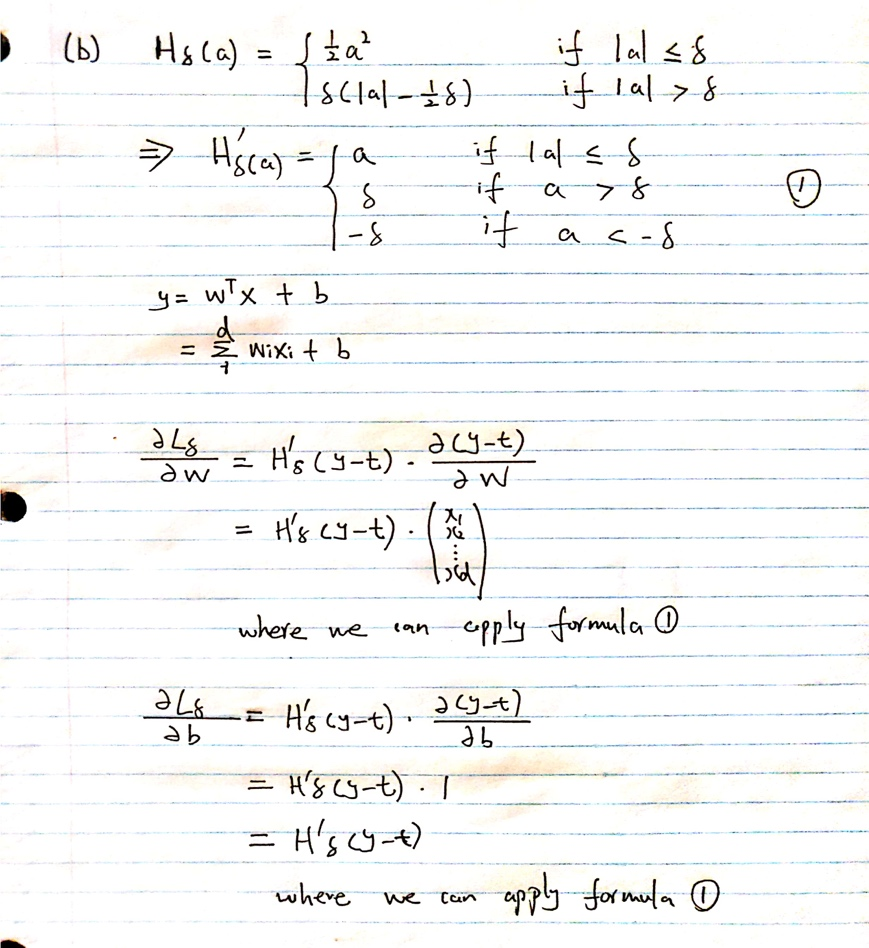 (b) H_δ(a) = { ½a² if |a| ≤ δ
δ(|a| - ½δ) if |a| > δ
⇒ H'_δ(a) = { a if |a| ≤ δ
δ if a > δ ①
-δ if a < -δ
y = wᵀx + b
= Σ₁ᵈ wᵢxᵢ + b
∂L_δ/∂w = H'_δ(y-t) · ∂(y-t)/∂w
= H'_δ(y-t) · (x₁ x₂ ⋮ x_d)
where we can apply formula ①
∂L_δ/∂b = H'_δ(y-t) · ∂(y-t)/∂b
= H'_δ(y-t) · 1
= H'_δ(y-t)
where we can apply formula ①